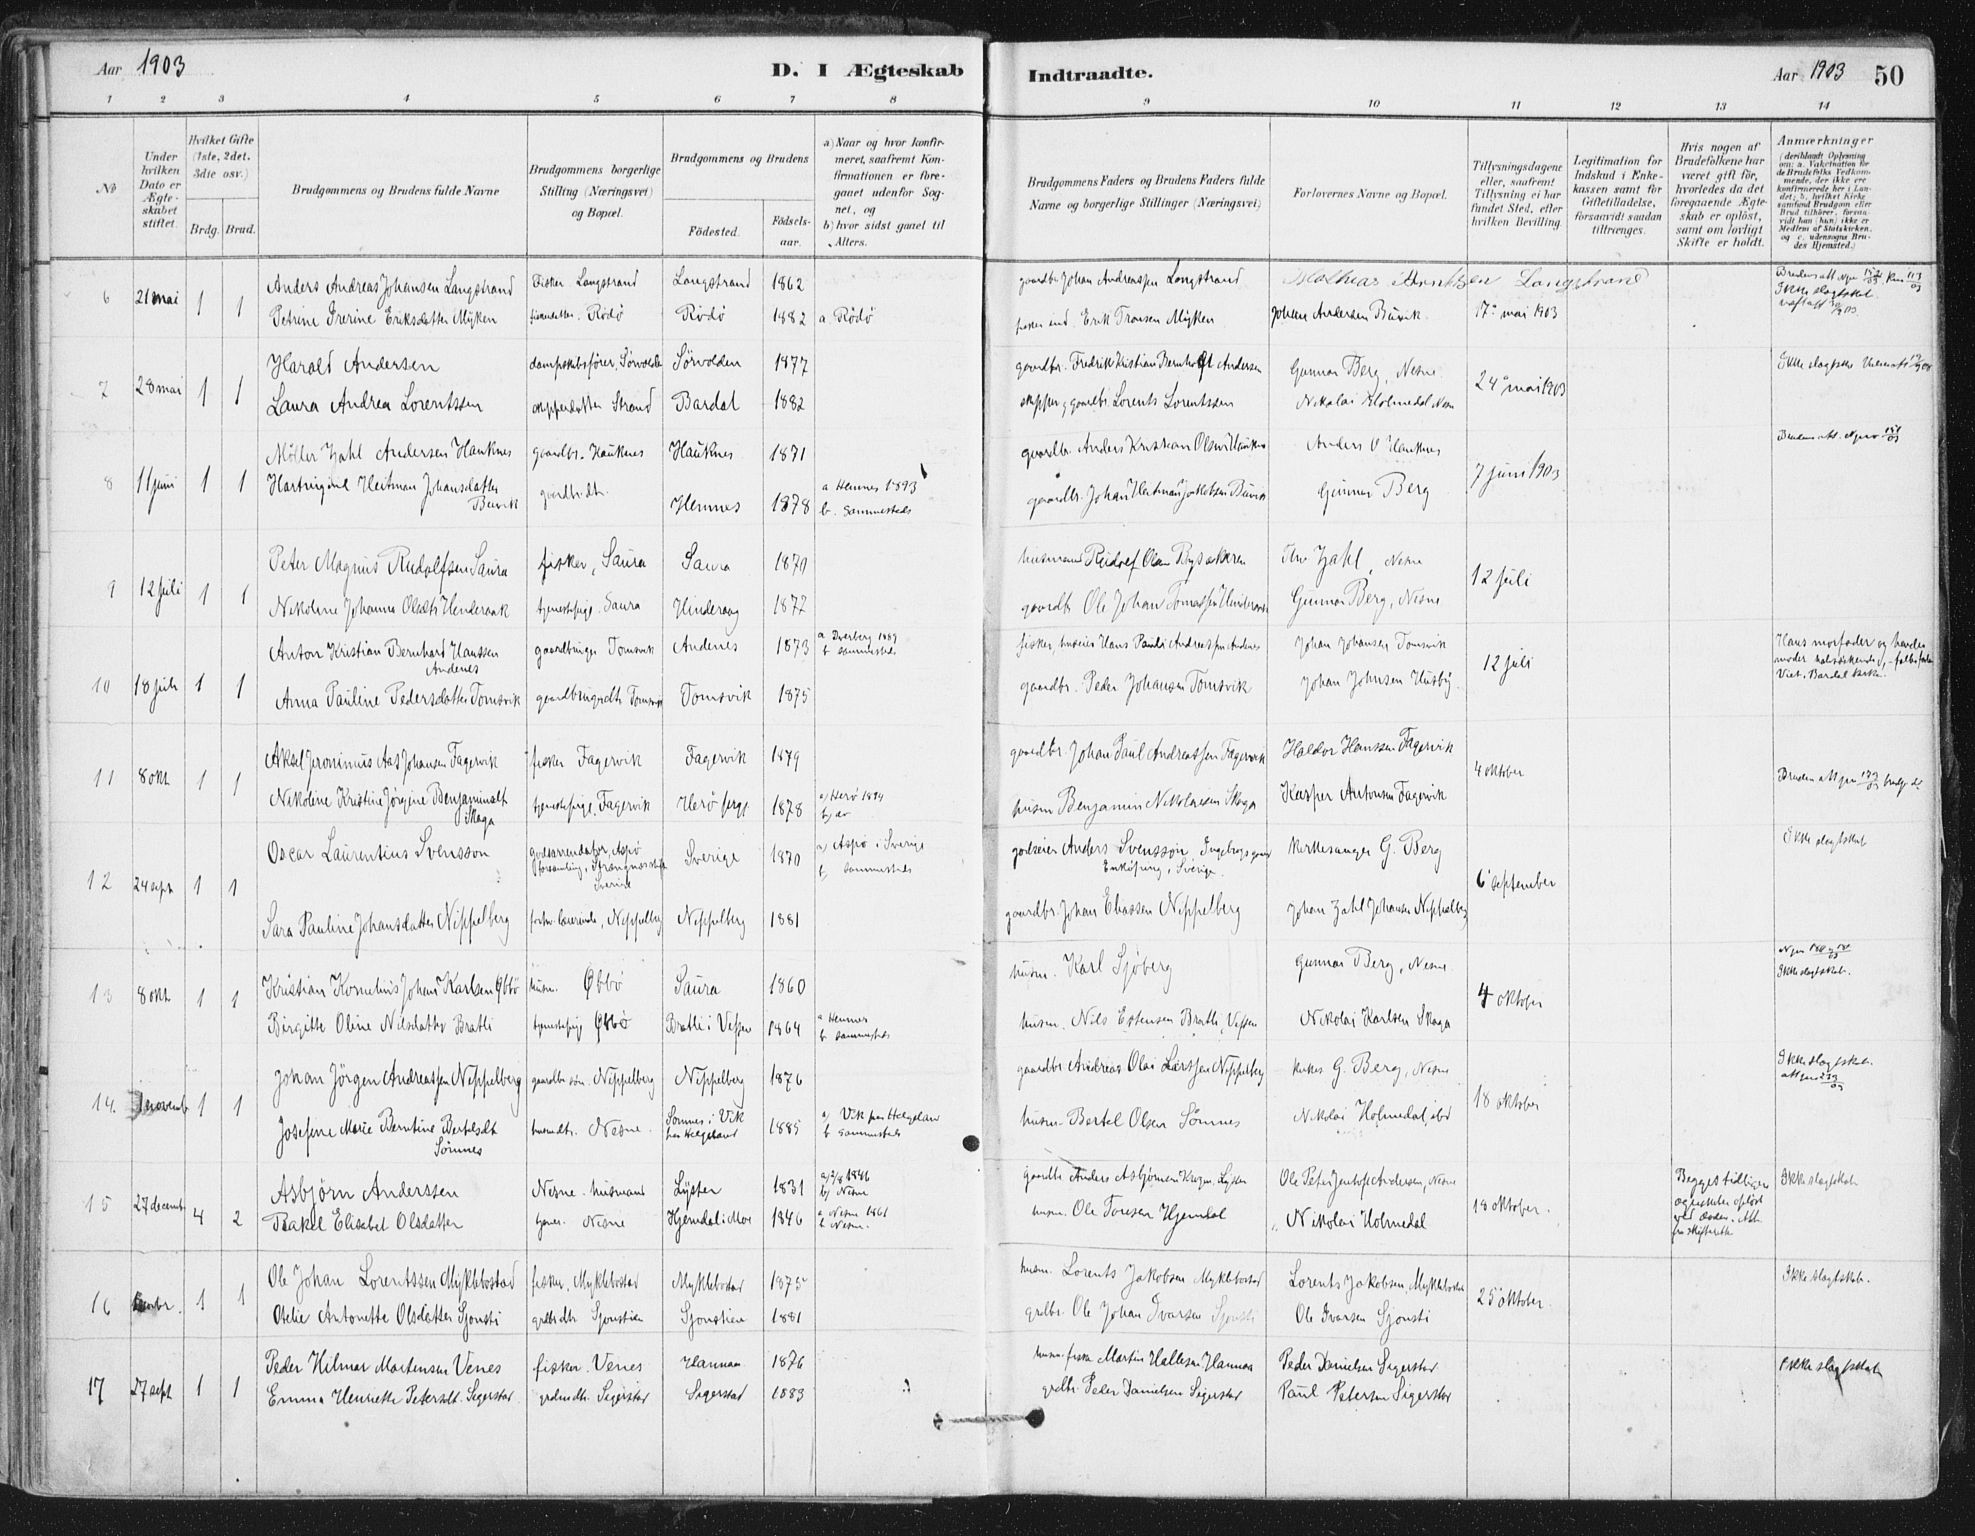 Aar 1903 D. I Ægteskab Indtraadte. Aar 1903 50
1 2 3 4 5 6 7 8 9 10 11 12 13 14
No
Under hvilken Dato er Ægteskabet stiftet.
Hvilket Gifte (1ste, 2det, 3die osv.)
Brdg. Brud.
Brudgommens og Brudens fulde Navne
Brudgommens borgerlige Stilling (Næringsvei) og Bopæl.
Brudgommens og Brudens
Fødested. Fødselsaar.
a) Naar og hvor konfirmeret, saafremt Konfirmationen er foregaaet udenfor Sognet, og
b) hvor sidst gaaet til Alters.
Brudgommens Faders og Brudens Faders fulde Navne og borgerlige Stillinger (Næringsvei)
Forlovernes Navne og Bopæl.
Tillysningsdagene eller, saafremt Tillysning ei har fundet Sted, efter hvilken Bevilling.
Legitimation for Indskud i Enkekassen samt for Giftetilladelse, forsaavidt saadan tiltrænges.
Hvis nogen af Brudefolkene har været gift før, hvorledes da det foregaaende Ægteskab er opløst, samt om lovligt Skifte er holdt.
Anmærkninger (deriblandt Oplysning om: a. Vakcination for de Brudefolks Vedkommende, der ikke ere konfirmerede her i Landet; b. hvilket Kirkesamfund Brudgom eller Brud tilhører, forsaavidt han (hun) ikke er Medlem af Statskirken, og c. udensogns Brudes Hjemsted.)
6 21 mai 1 1 Anders Andreas Johansen Langstrand Fisker Langstrand Langstrand 1862 gaardbr Johan Andreassen Langstrand Mathias Arntzen Langstrand
Petrine Irerine Eriksdatter Myken Rödö Rödö 1882 a. Rödö Erik Tronsen Myken Johan Andersen Buvik 17 mai 1903
7 28 mai 1 1 Harald Andersen dampskibsfører, Sörvolden Sörvolden 1877 gaardbr. Fredrik Kristian Bernhoft Andersen Gunnar Berg, Nesne 24 mai 1903
Laura Andrea Lorentssen skipperdatter Strand Bardal 1882 skipper og gaardbr. Lorents Lorentssen Nikolai Holmedal Nesne
8 11 juni 1 1 Möller Zahl Andersen Hauknes gaardbr. Hauknes Hauknes 1871 gaardbr. Anders Kristian Olsen Hauknes Anders O Hauknes 7 juni 1903
Heitman Johansdatter Buvik gaardbr.dtr. Hemnes 1878 a Hemnes 1893 b. sammesteds gaardbr. Johan Heitman Jakobsen Buvik Gunnar Berg
9 12 juli 1 1 Peter Magnus Rudolfsen Saura fisker, Saura Saura 1870 husmand Rudolf Olsen Zahl, Nesne 12 juli
Nikoline Johanna Olsdtr Hinderaak tjenestepige Saura 1877 gaardbr. Ole Johan Tomassen Gunnar Berg, Nesne
10 18 juli 1 1 Anton Kristian Bernhard Hanssen Andenes gaardbruger Tomsvik Andenes 1873 a Dverberg 1889 b sammesteds fisker, Hans Pauli Andreassen Andenes Johan Johansen Tomsvik 12 juli
Anna Pauline Pedersdatter Tomsvik Tomsvik Tomsvik 1875 gaardbr. Peder Johansen Tomsvik Johan Johnsen Husby.
Hans morfader og hendes moder halvsøskende Viet i Bardal kirke.
11 8 okt 1 1 Aksel Jeronimus Aas Johansen Fagervik fisker Fagervik Fagervik 1879 gaardbr. Johan Paul Andreassen Fagervik Haldor Hanssen Fagervik 4 oktober
Nikoline Kristine Jörgine Benjaminsdt Skaga tjenestepige, Fagervik Herö 1878 a) Herö 1894 husm Benjamin Nikolaisen Skaga Kasper Antonsen Fagervik
12 24 sept 1 1 Oscar Laurentius Svensson godsarrendator, Aspö forsamling, Strængnæs stift Sverige Sverige 1870 a) Aspö i Sverige b) sammesteds godseier Anders Svensson, Enköping, Sverige. kirkesanger G. Berg 6 september Ikke slagtskab
Sara Pauline Johansdatter Nippelberg Nippelberg Nippelberg 1881 gaardbr. Johan Eliassen Nippelberg Johan Zahl Johansen Nippelberg
13 8 okt 1 1 Kristian Kornelius Johan Karlsen Øbbø husm. Øbbø Saura 1860 husm. Karl Sjöberg Gunnar Berg, Nesne 4 oktober Ikke slagtskab.
Birgitte Oline Nilsdatter Bratli tjenestepig Øbbø Bratli i Vefsen 1864 a Hemnes b sammesteds husm. Nils Estensen Bratli, Vefsen Nikolai Karlsen Skaga
14. 1 novemb 1 1 Johan Jörgen Andreassen Nippelberg gaardbr søn. Nippelberg Nippelberg 1876 gaardbr Andreas Olai Larssen Nippelberg G. Berg, Nesne 18 oktober Ikke slagtskab.
Josefine Marie Berntine Bertelsdt Sömnes husmdtr. Nesne. Sömnes i Vik paa Helgeland 1885 a) Vik paa Helgeland b sammesteds husm. Bertel Olsen Sömnes Nikolai Holmedal, ibid
15 27 decemb 4 2 Asbjörn Anderssen Nesne. husmand Lyster 1831 1846 b) Nesne gaardbr Anders Asbjörnsen Ole Peter Jentoft Andersen, Nesne 18 oktober. Ikke slagtskab.
Rakel Elisabet Olsdatter Nesne Hjemdal i Moe 1846 a Nesne 1861 b Nesne. husm. Ole Toresen Hjemdal Nikolai Holmedal
Begges tidligere ægteskaber opløst ved døden. Att. fra skifterett
16 1 1 Ole Johan Lorentssen Myklebostad fisker, Myklebostad Myklebostad 1875 husm. Lorents Jakobsen Myklebostad Lorents Jakobsen, Myklebostad 25 oktober. Ikke slagtskab.
Otelie Antonette Olsdatter Sjonsti grdbr dtr Sjonstien Sjonstien 1881 grdbr. Ole Johan Ivarsen Sjonsti Ole Ivarsen Sjonsti
17 27 sept 1 1 Peder Hilmar Martensen Venes fisker. Venes Hannaa 1876 husm. fisker Martin Hallesen Hannaa Peder Danielsen Sigerstad Ikke slagtskab
Emma Henriette Petersdt. Segerstad Segerstad Segerstad 1883 grdbr. Peder Danielsen Sigerstad Paul Petersen Sigerstad